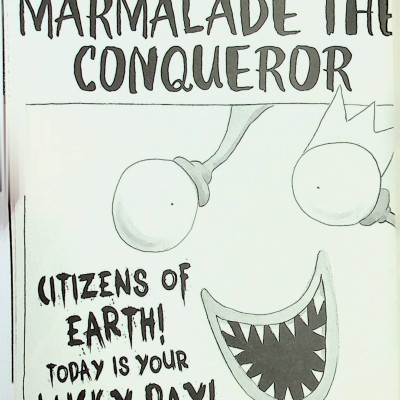 MARMALADE THE
CONQUEROR
CITIZENS OF
EARTH!
TODAY IS YOUR
LUCKY DAY!